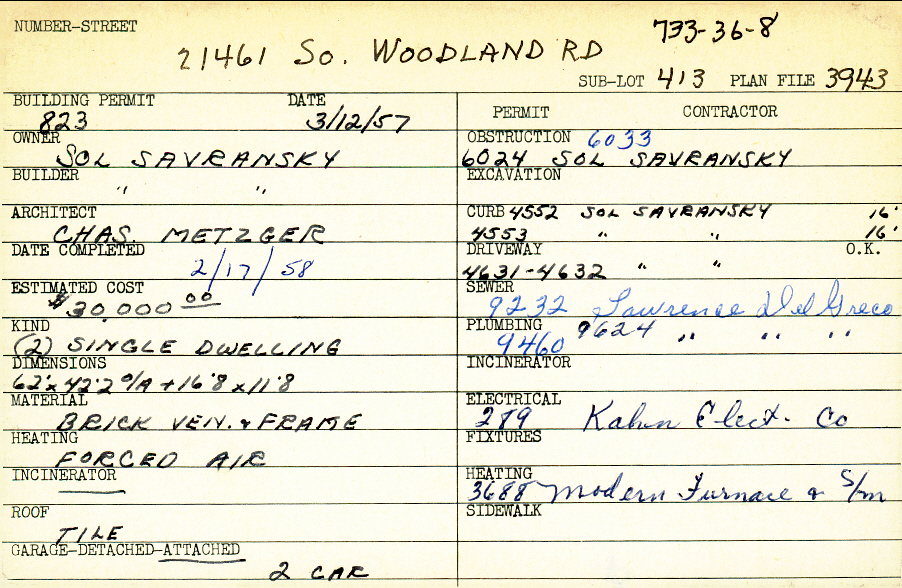 NUMBER-STREET
733-36-8
21461 So. WOODLAND RD
SUB-LOT 413 PLAN FILE 3943
BUILDING PERMIT DATE
823 3/12/57
OWNER
SOL SAVRANSKY
BUILDER
" "
ARCHITECT
CHAS. METZGER
DATE COMPLETED
2/17/58
ESTIMATED COST
$30,000 00
KIND
(2) SINGLE DWELLING
DIMENSIONS
62' x 42'2 O/A + 16'8 x 11'8
MATERIAL
BRICK VEN. & FRAME
HEATING
FORCED AIR
INCINERATOR
ROOF
TILE
GARAGE-DETACHED-ATTACHED
2 CAR
PERMIT CONTRACTOR
OBSTRUCTION 6033
6024 SOL SAVRANSKY
EXCAVATION
CURB 4552 SOL SAVRANSKY 16'
4553 " " 16'
DRIVEWAY O.K.
4631-4632 " "
SEWER
9232 Lawrence Del Greco
PLUMBING 9624 " " "
9460
INCINERATOR
ELECTRICAL
289 Kahn Elect. Co
FIXTURES
HEATING
3688 Modern Furnace & S/m
SIDEWALK